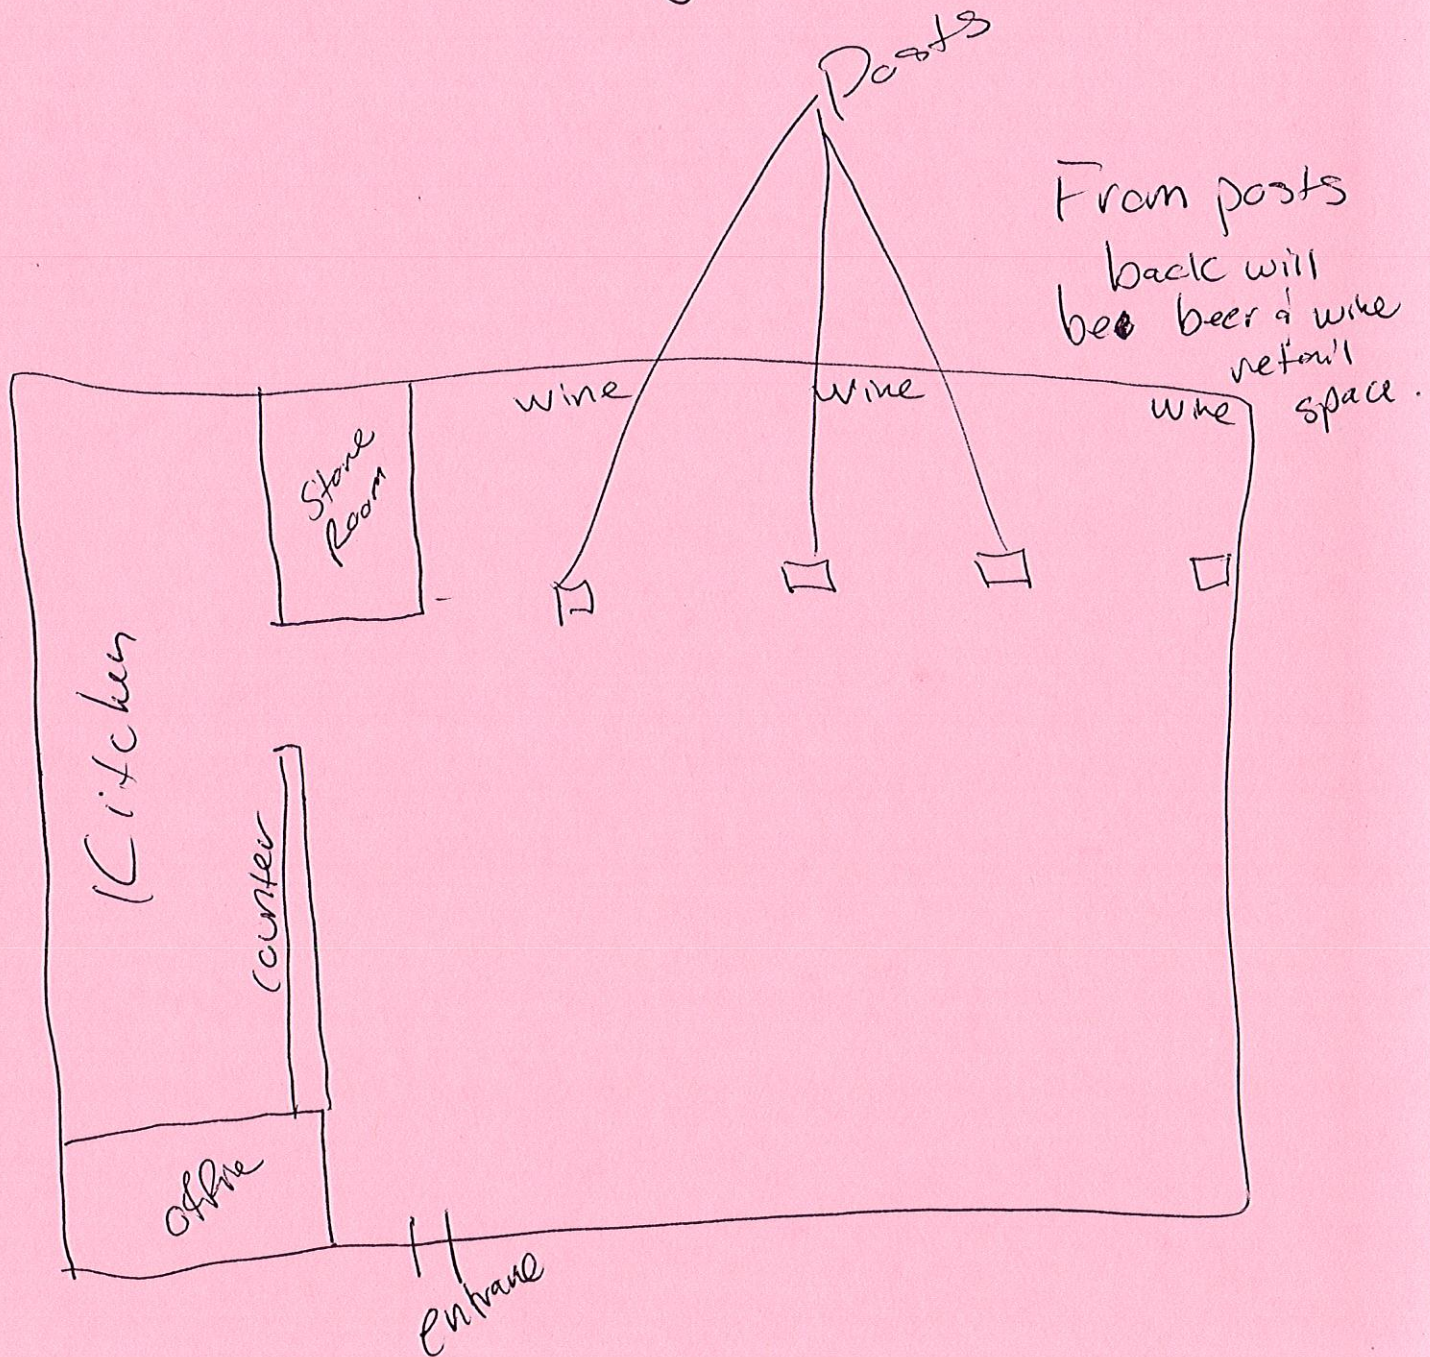 Posts
From posts
back will
be beer & wine
retail
space.
wine
wine
wine
Store
Room
Kitchen
counter
office
entrance